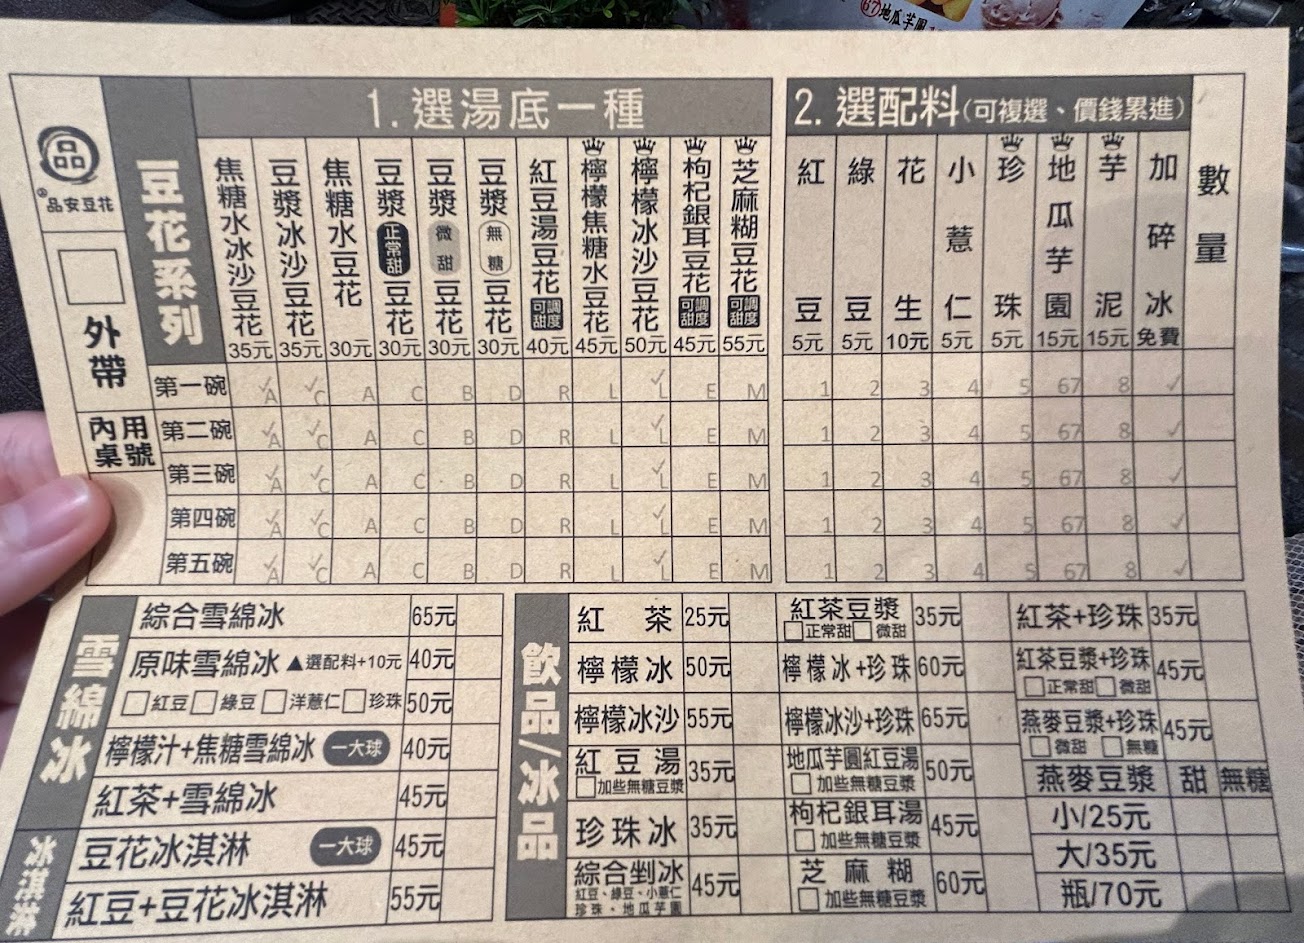 67地瓜芋圓
品
®品安豆花
外帶
內用桌號
豆花系列
1. 選湯底一種
焦糖水冰沙豆花 35元
豆漿冰沙豆花 35元
焦糖水豆花 30元
豆漿正常甜豆花 30元
豆漿微甜豆花 30元
豆漿無糖豆花 30元
紅豆湯豆花 可調甜度 40元
檸檬焦糖水豆花 45元
檸檬冰沙豆花 50元
枸杞銀耳豆花 可調甜度 45元
芝麻糊豆花 可調甜度 55元
2. 選配料(可複選、價錢累進)
紅豆 5元
綠豆 5元
花生 10元
小薏仁 5元
珍珠 5元
地瓜芋園 15元
芋泥 15元
加碎冰 免費
數量
第一碗 ✓A ✓C A C B D R L ✓L E M 1 2 3 4 5 67 8 ✓
第二碗 ✓A ✓C A C B D R L ✓L E M 1 2 3 4 5 67 8 ✓
第三碗 ✓A ✓C A C B D R L ✓L E M 1 2 3 4 5 67 8 ✓
第四碗 ✓A ✓C A C B D R L ✓L E M 1 2 3 4 5 67 8 ✓
第五碗 ✓A ✓C A C B D R L ✓L E M 1 2 3 4 5 67 8 ✓
雪綿冰
綜合雪綿冰 65元
原味雪綿冰 ▲選配料+10元 40元
□紅豆□綠豆□洋薏仁□珍珠 50元
檸檬汁+焦糖雪綿冰 一大球 40元
紅茶+雪綿冰 45元
冰淇淋
豆花冰淇淋 一大球 45元
紅豆+豆花冰淇淋 55元
飲品/冰品
紅茶 25元
檸檬冰 50元
檸檬冰沙 55元
紅豆湯 35元
□加些無糖豆漿
珍珠冰 35元
綜合剉冰 45元
紅豆、綠豆、小薏仁
珍珠、地瓜芋園
紅茶豆漿 35元
□正常甜□微甜
檸檬冰+珍珠 60元
檸檬冰沙+珍珠 65元
地瓜芋圓紅豆湯 50元
□加些無糖豆漿
枸杞銀耳湯 45元
□加些無糖豆漿
芝麻糊 60元
□加些無糖豆漿
紅茶+珍珠 35元
紅茶豆漿+珍珠 45元
□正常甜□微甜
燕麥豆漿+珍珠 45元
□微甜 □無糖
燕麥豆漿 甜 無糖
小/25元
大/35元
瓶/70元